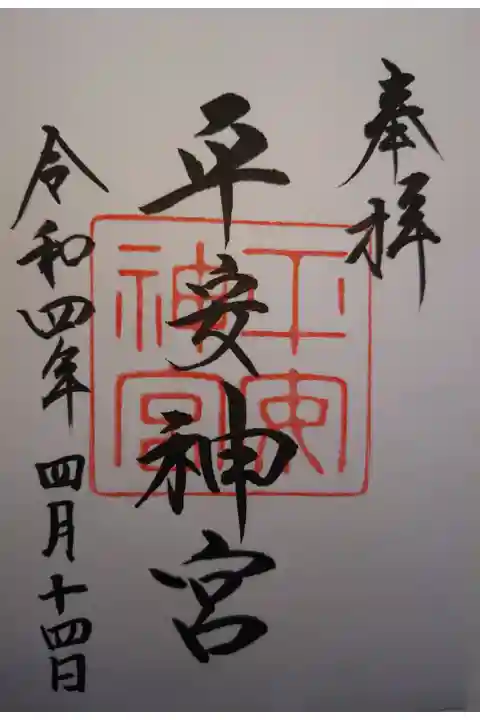 奉拝
平安神宮
平安神宮
令和四年四月十四日